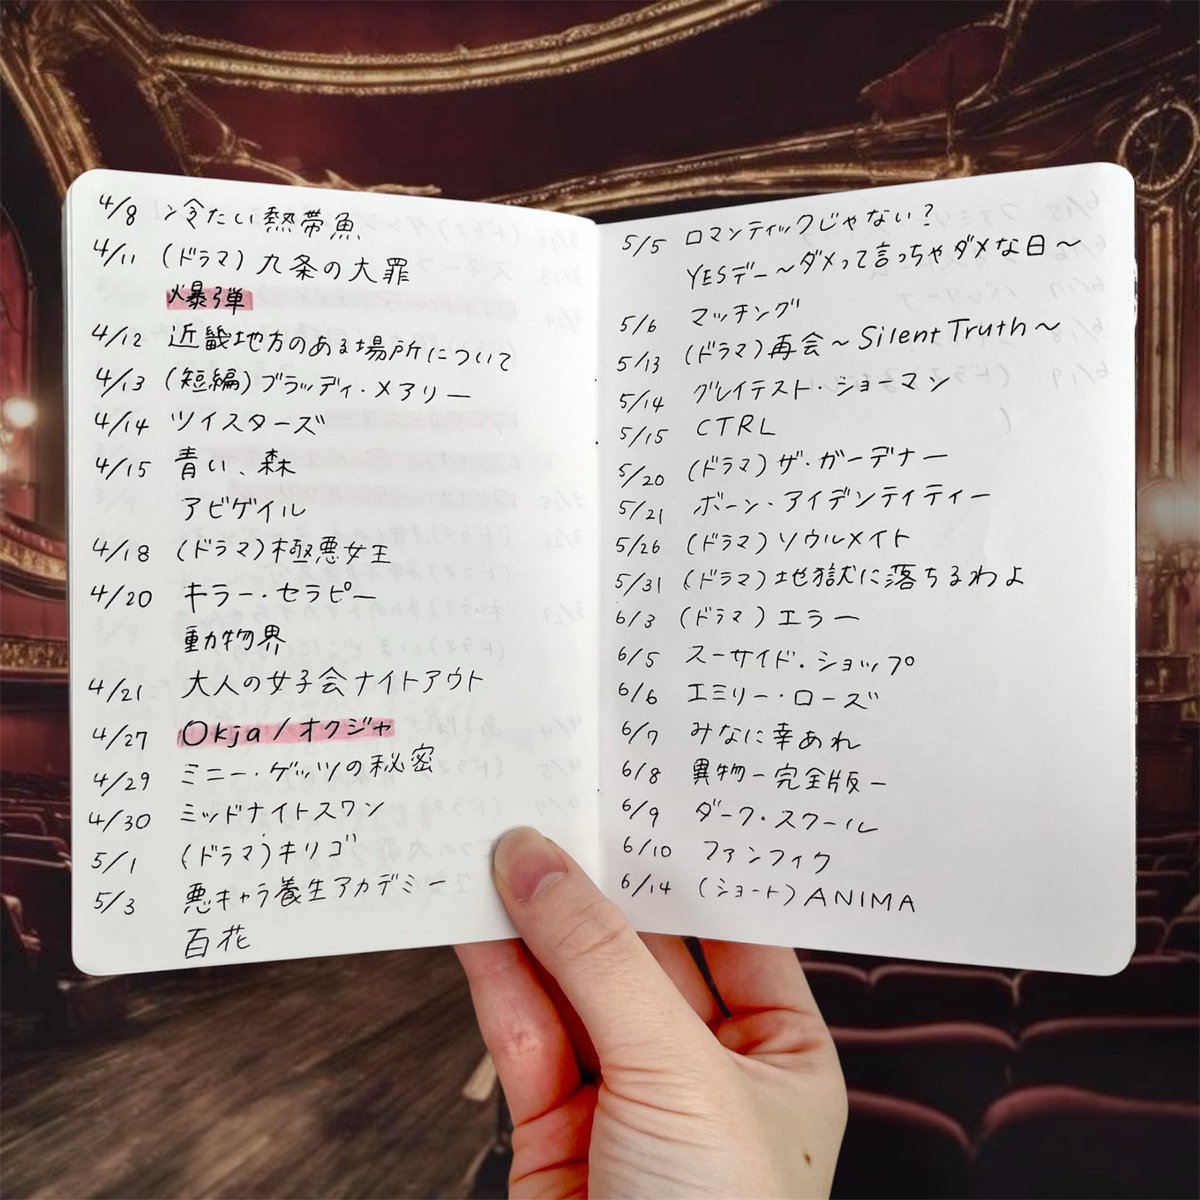 4/8 冷たい熱帯魚
4/11 (ドラマ) 九条の大罪
爆弾
4/12 近畿地方のある場所について
4/13 (短編) ブラッディ・メアリー
4/14 ツイスターズ
4/15 青い、森
アビゲイル
4/18 (ドラマ) 極悪女王
4/20 キラー・セラピー
動物界
4/21 大人の女子会ナイトアウト
4/27 Okja/オクジャ
4/29 ミニー・ゲッツの秘密
4/30 ミッドナイトスワン
5/1 (ドラマ) キリゴ
5/3 悪キャラ養生アカデミー
百花
5/5 ロマンティックじゃない?
YESデー〜ダメって言っちゃダメな日〜
5/6 マッチング
5/13 (ドラマ) 再会〜Silent Truth〜
5/14 グレイテスト・ショーマン
5/15 CTRL
5/20 (ドラマ) ザ・ガーデナー
5/21 ボーン・アイデンティティー
5/26 (ドラマ) ソウルメイト
5/31 (ドラマ) 地獄に落ちるわよ
6/3 (ドラマ) エラー
6/5 スーサイド・ショップ
6/6 エミリー・ローズ
6/7 みなに幸あれ
6/8 異物-完全版-
6/9 ダーク・スクール
6/10 ファンフィク
6/14 (ショート) ANIMA